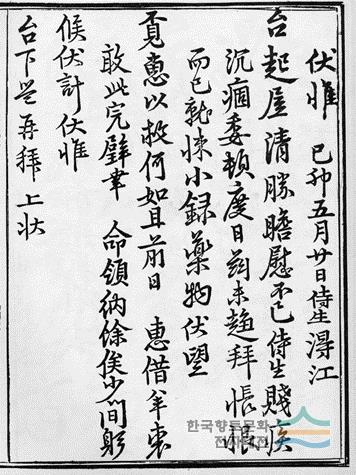 伏惟　己卯五月廿日侍生潯江
台起居清勝瞻慰不已侍生賤疾
沉痼委頓度日尚未趨拜悵恨
而已就悚小録藥物伏望
覓惠以救何如且前日　惠借年衷
敢此完璧幸　命領納餘俟少間躬
候伏計伏惟
台下생再拜 上狀
한국향토문화
전자대전